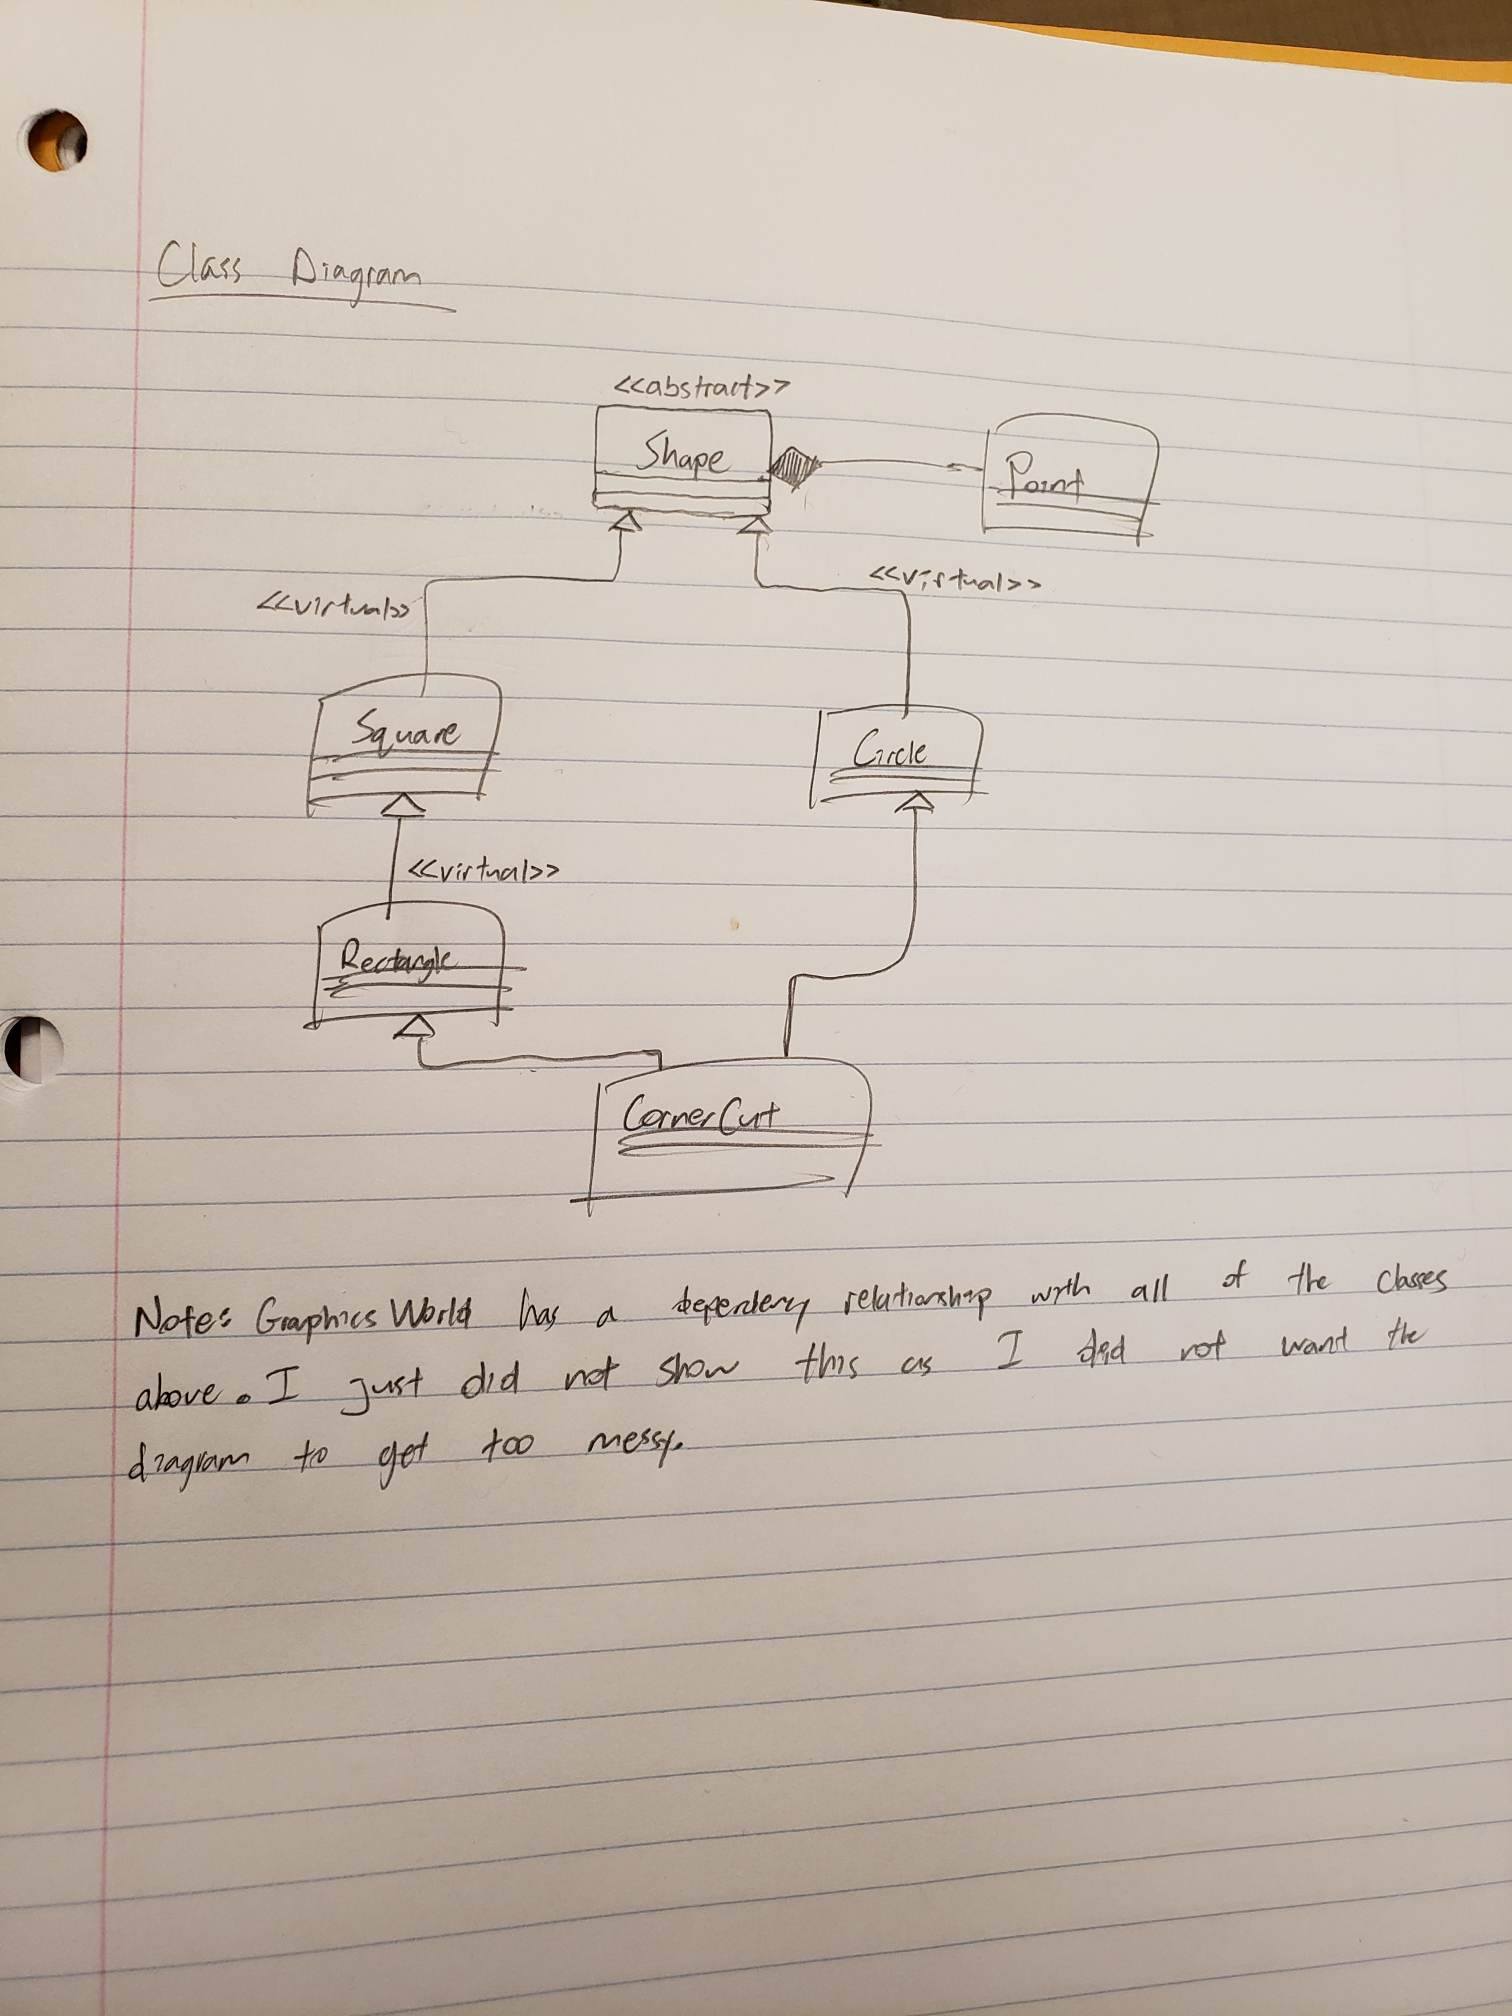 Class Diagram
<<abstract>>
Shape
Point
<<virtual>>
<<virtual>>
Square
Circle
<<virtual>>
Rectangle
CornerCut
Note: Graphics World has a dependency relationship with all of the classes
above. I just did not show this as I did not want the
diagram to get too messy.